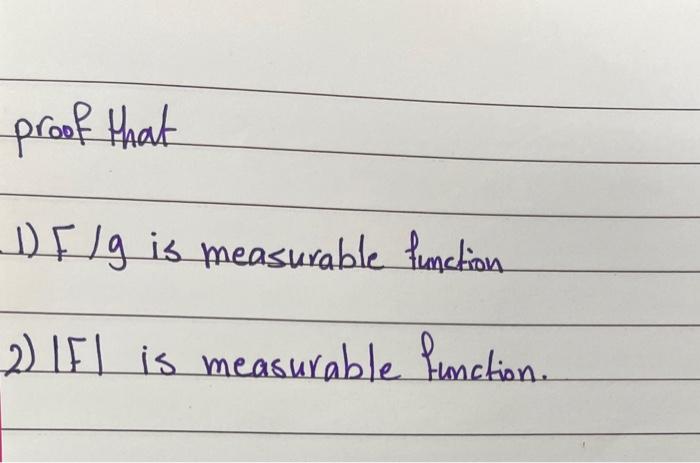 proof that
1) F/g is measurable function
2) |F| is measurable function.